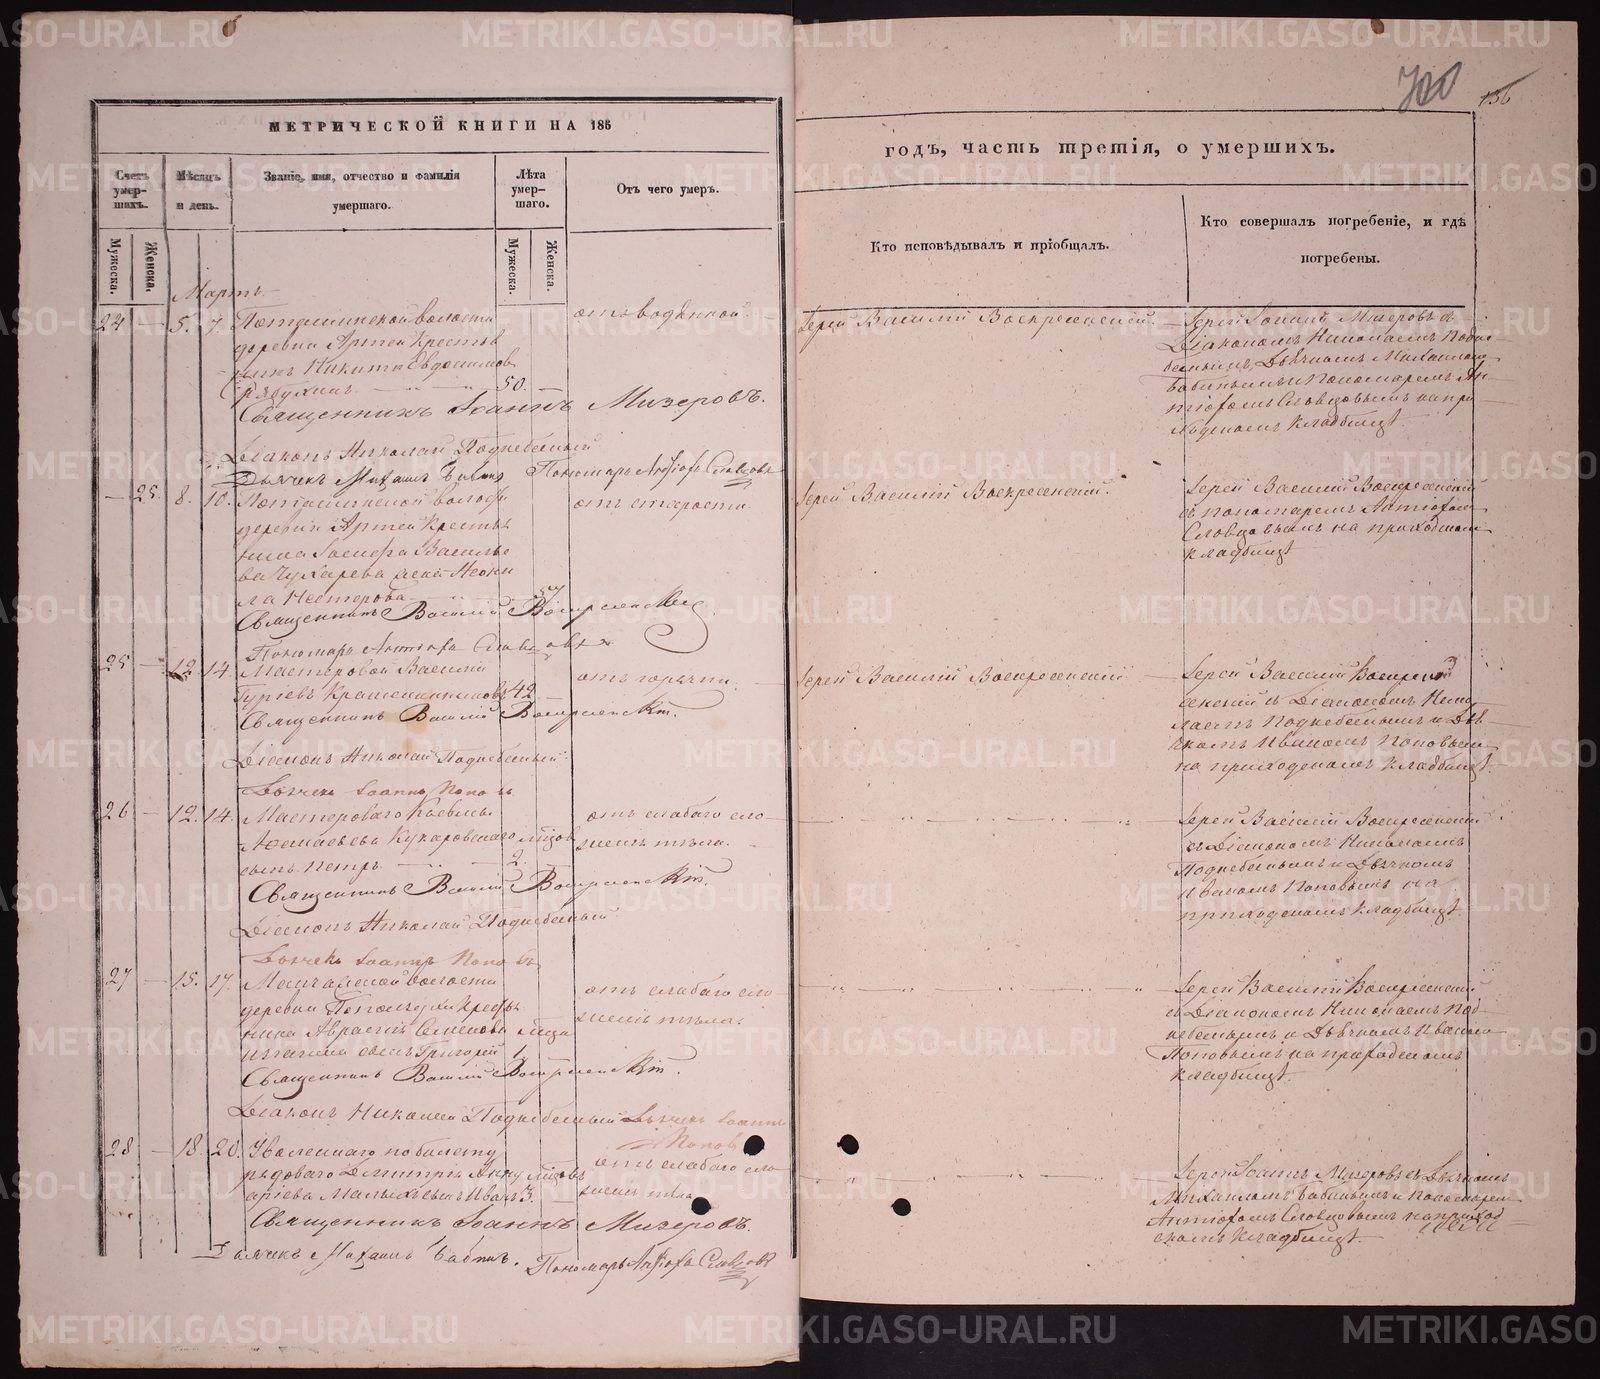 МЕТРИЧЕСКОЙ КНИГИ НА 185
Счетъ умер-шихъ.
Мѣсяцъ и день.
Званіе, имя, отчество и фамилія умершаго.
Лѣта умер-шаго.
Отъ чего умеръ.
Мужеска.
Женска.
Мужеска.
Женска.
Мартъ
24 — 5. 7.
деревни Артей Крестья
нинъ Никита Евдокимовъ
50.
отъ водяной.
Священникъ Іоаннъ Мизеровъ.
Діаконъ Николай Поднебесный
Дьячекъ Михаилъ Бабинъ Пономарь Антіохъ Словцовъ
— 25. 8. 10.
деревни Артей Крестья
нина Іосифа Василье
ва Чухарева жена Неони
ла Нестерова
57
отъ старости.
Священникъ Василій Воскресенскій.
Пономарь Антіохъ Словцовъ
25 — 12 14. Мастеровой Василій
Гуріевъ Крашенинниковъ 42
отъ горячки.
Священникъ Василій Воскресенскій.
Діаконъ Николай Поднебесный
Дьячекъ Іоаннъ Поповъ
26 — 12. 14. Мастероваго
сынъ Петръ 2.
отъ слабаго сло-
женія тѣла.
Священникъ Василій Воскресенскій.
Діаконъ Николай Поднебесный
Дьячекъ Іоаннъ Поповъ
27 — 15. 17.
деревни
сынъ Григорій 1.
отъ слабаго сло
женія тѣла.
Священникъ Василій Воскресенскій.
Діаконъ Николай Поднебесный Дьячекъ Іоаннъ
Поповъ
28 — 18. 20. Уволеннаго по билету
рядоваго Дмитрія
сынъ Иванъ 3.
отъ слабаго сло-
женія тѣла
Священникъ Іоаннъ Мизеровъ.
Дьячекъ Михаилъ Бабинъ. Пономарь Антіохъ Словцовъ
700
156
годъ, часть третія, о умершихъ.
Кто исповѣдывалъ и пріобщалъ.
Кто совершалъ погребеніе, и гдѣ погребены.
Іерей Василій Воскресенскій.
Іерей Іоаннъ Мизеровъ съ
Діакономъ Николаемъ Подне-
беснымъ, Дьячкомъ Михаиломъ
Бабинымъ и Пономаремъ Ан-
тіохомъ Словцовымъ на при-
ходскомъ кладбищѣ.
Іерей Василій Воскресенскій.
Іерей Василій Воскресенскій
съ пономаремъ Антіохомъ
Словцовымъ на приходскомъ
кладбищѣ
Іерей Василій Воскресенскій
Іерей Василій Воскре
сенскій съ Діакономъ Нико-
лаемъ Поднебеснымъ и Дья-
чкомъ Иваномъ Поповымъ
на приходскомъ кладбищѣ.
Іерей Василій Воскресенскій
съ Діакономъ Николаемъ
Поднебеснымъ и Дьячкомъ
Иваномъ Поповымъ на
приходскомъ кладбищѣ.
Іерей Василій Воскресенскій
съ Діакономъ Николаемъ Под-
небеснымъ и Дьячкомъ Иваномъ
Поповымъ на приходскомъ
кладбищѣ.
Іерей Іоаннъ Мизеровъ съ Дьячкомъ
Михаиломъ Бабинымъ и Пономаремъ
Антіохомъ Словцовымъ на приход
скомъ кладбищѣ.
METRIKI.GASO-URAL.RU